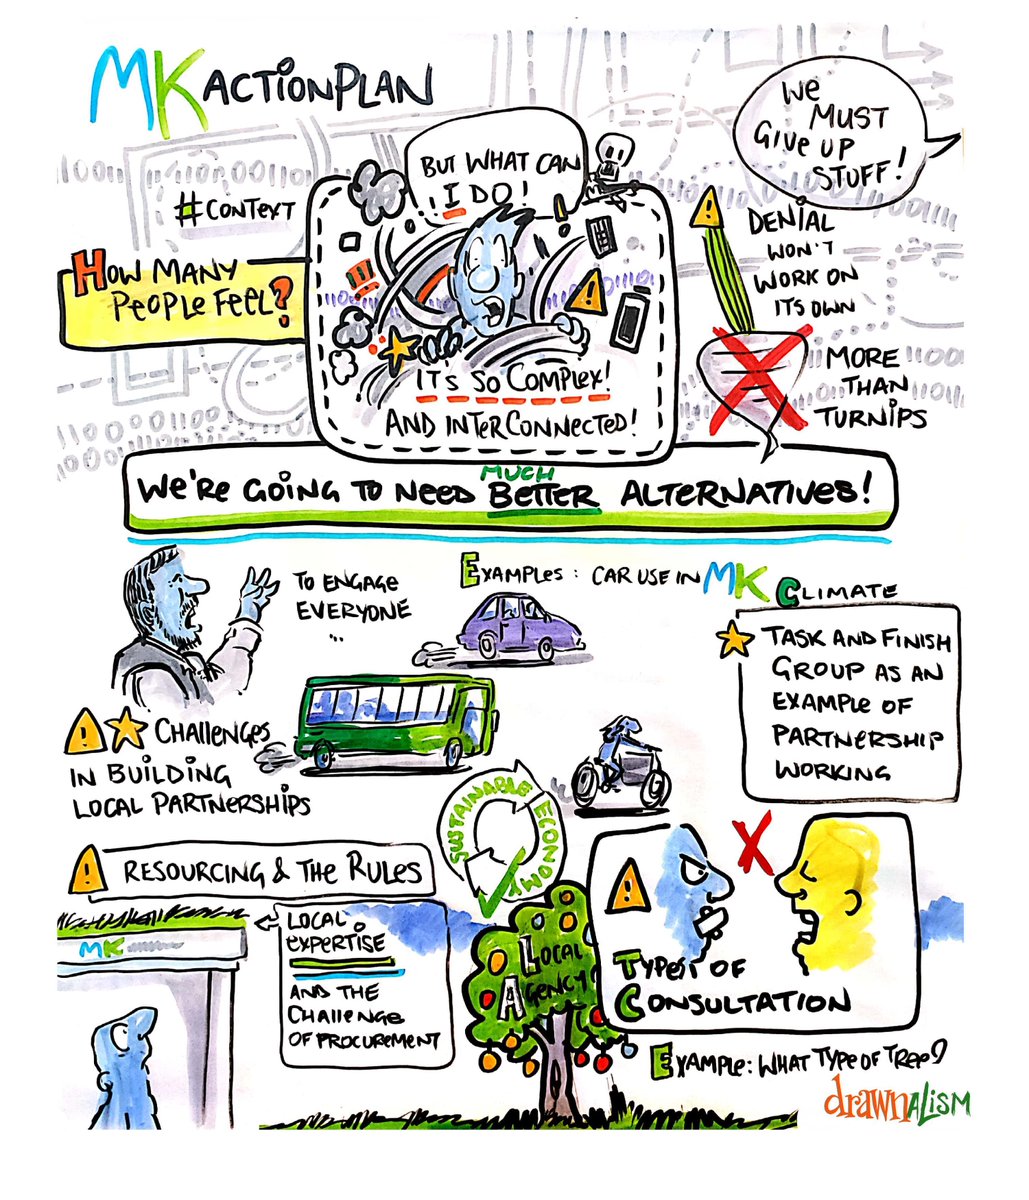 MK ACTION PLAN
#CONTEXT
HOW MANY
PEOPLE FEEL?
BUT WHAT CAN
I DO!
IT'S SO COMPLEX!
AND INTERCONNECTED!
WE
MUST
GIVE UP
STUFF!
DENIAL
WON'T
WORK ON
ITS OWN
MORE
THAN
TURNIPS
MUCH
WE'RE GOING TO NEED BETTER ALTERNATIVES!
TO ENGAGE
EVERYONE
...
EXAMPLES: CAR USE IN MK
CLIMATE
TASK AND FINISH
GROUP AS AN
EXAMPLE OF
PARTNERSHIP
WORKING
CHALLENGES
IN BUILDING
LOCAL PARTNERSHIPS
SUSTAINABLE ECONOMY
RESOURCING & THE RULES
MK
LOCAL
EXPERTISE
AND THE
CHALLENGE
OF PROCUREMENT
LOCAL
AGENCY
TYPES OF
CONSULTATION
EXAMPLE: WHAT TYPE OF TREE?
drawnALISM